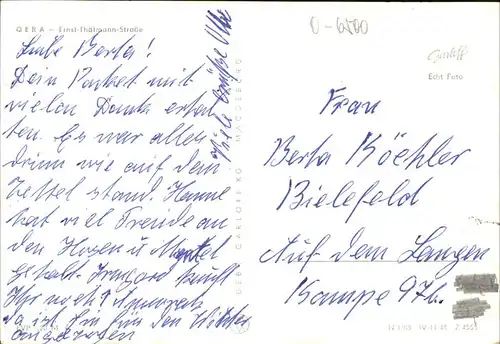 GERA – Ernst-Thälmann-Straße
Liebe Berta!
Dein Packet mit
vielen Dank erhal
ten. Es war alles
drinn wie auf dem
Zettel stand. Hanne
hat viel Freude an
den Hosen u Mantel
gehabt. Irmgard
Ihr noch?
für den Winter
angezogen
Viele Grüße
GEBR. GARLOFF KG, MAGDEBURG
D-6500
Garloff
Echt Foto
Frau
Berta Böckler
Bielefeld
Auf dem Langen
Kampe 97b.